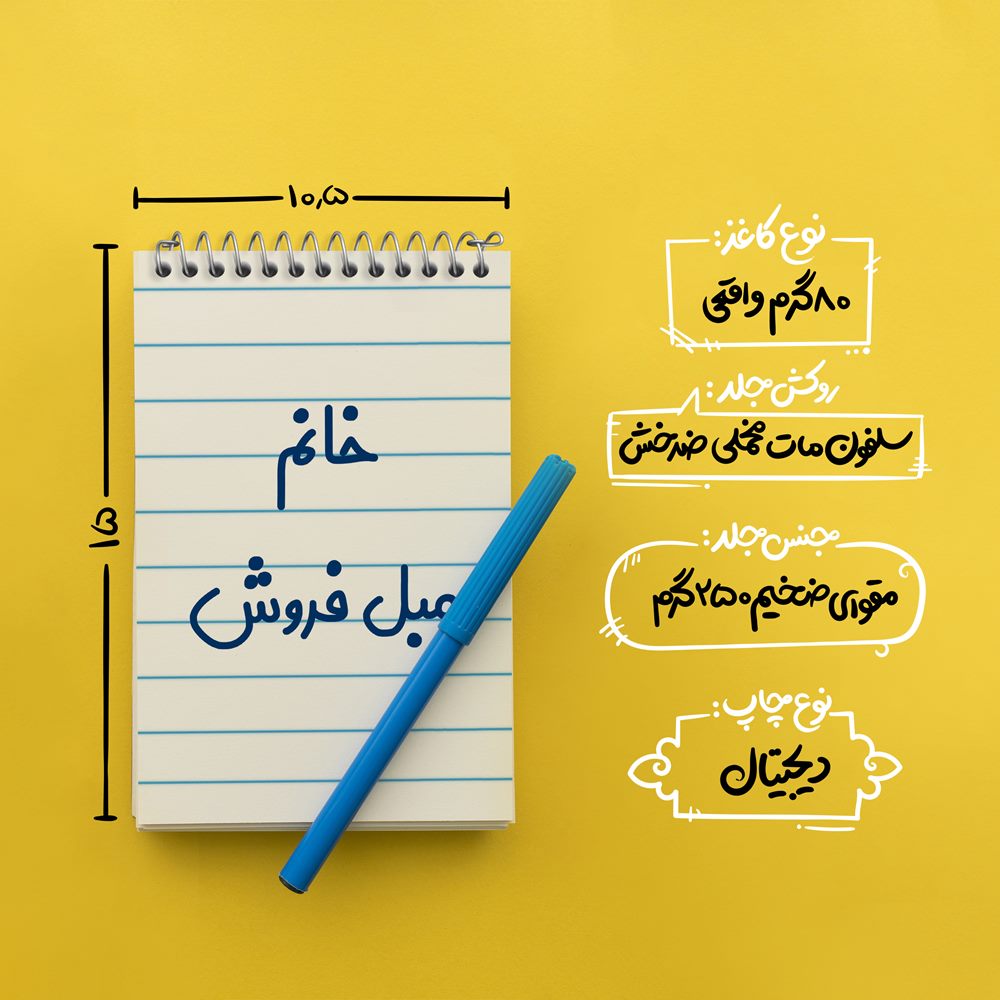 ۱۰٫۵
۱۵
خانم
مبل فروش
نوع کاغذ:
۸۰ گرم واقعی
روکش جلد:
سلفون مات مخملی ضدخش
جنس جلد:
مقوای ضخیم ۲۵۰ گرم
نوع چاپ:
دیجیتال